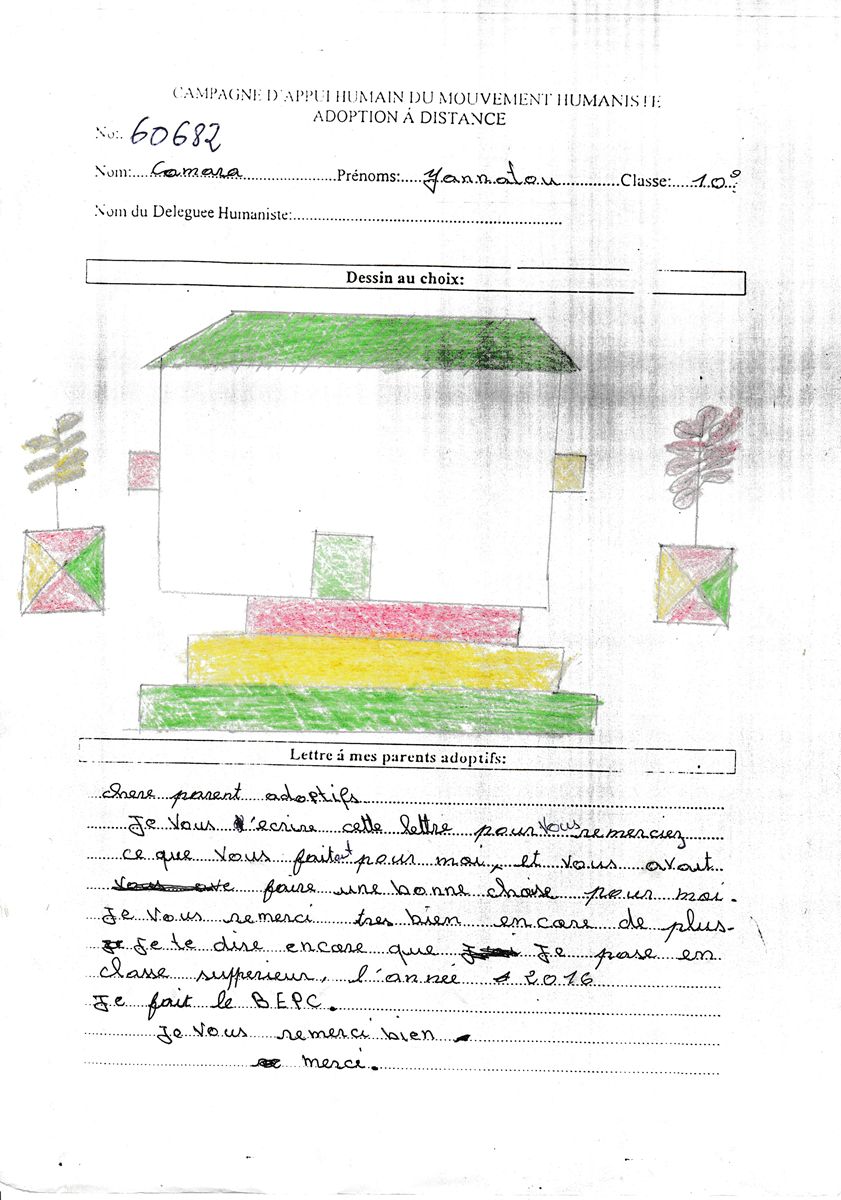 CAMPAGNE D'APPUI HUMAIN DU MOUVEMENT HUMANISTE
ADOPTION Á DISTANCE
No:. 60682
Nom:....Camara....................Prénoms:....Yannatou..............Classe:....10e..
Nom du Deleguee Humaniste:..............................................................
Dessin au choix:
Lettre á mes parents adoptifs:
chere parent adoptifs
Je vous l'ecrire cette lettre pour vous remerciez
ce que vous faitent pour moi, et vous avait
faire une bonne chose pour moi.
Je vous remerci tres bien encore de plus-
Je te dire encore que Je pase en
classe supperieur, l'année 2016
Je fait le BEPC.
Je vous remerci bien
merci.